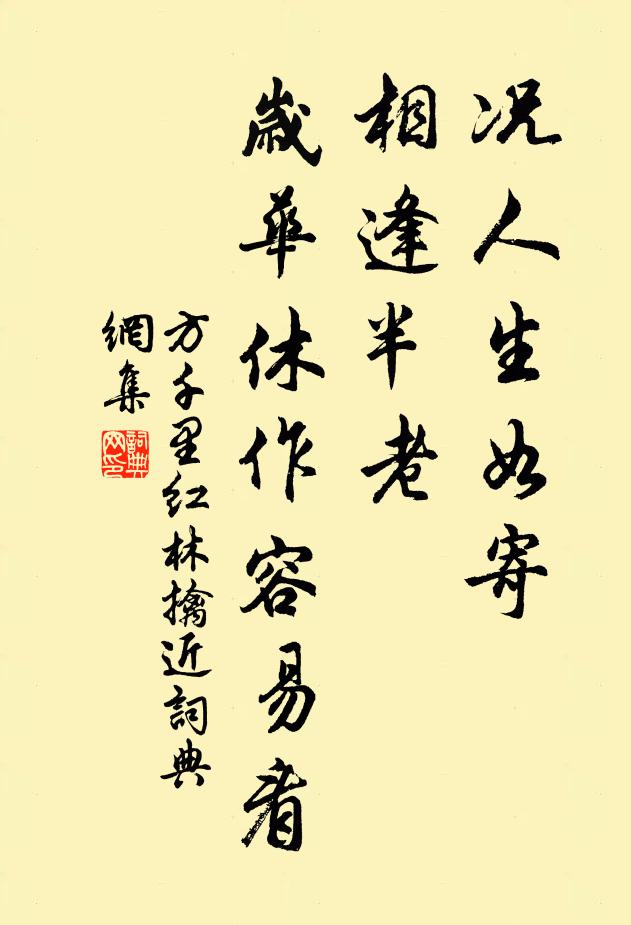 况人生如寄
相逢半老
歲華休作容易看
方千里红林擒近詞典
網集
詞典網印